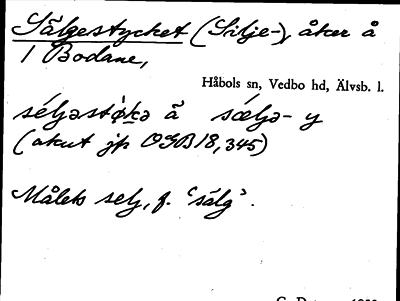 Sälgestycket (Silje-), åker å
1 Bodane,
Håbols sn, Vedbo hd, Älvsb. l.
séljəstỳkə å sǽljə- y
(akut jfr OGB 18, 345)
Målets selj, f. 'sälg'.